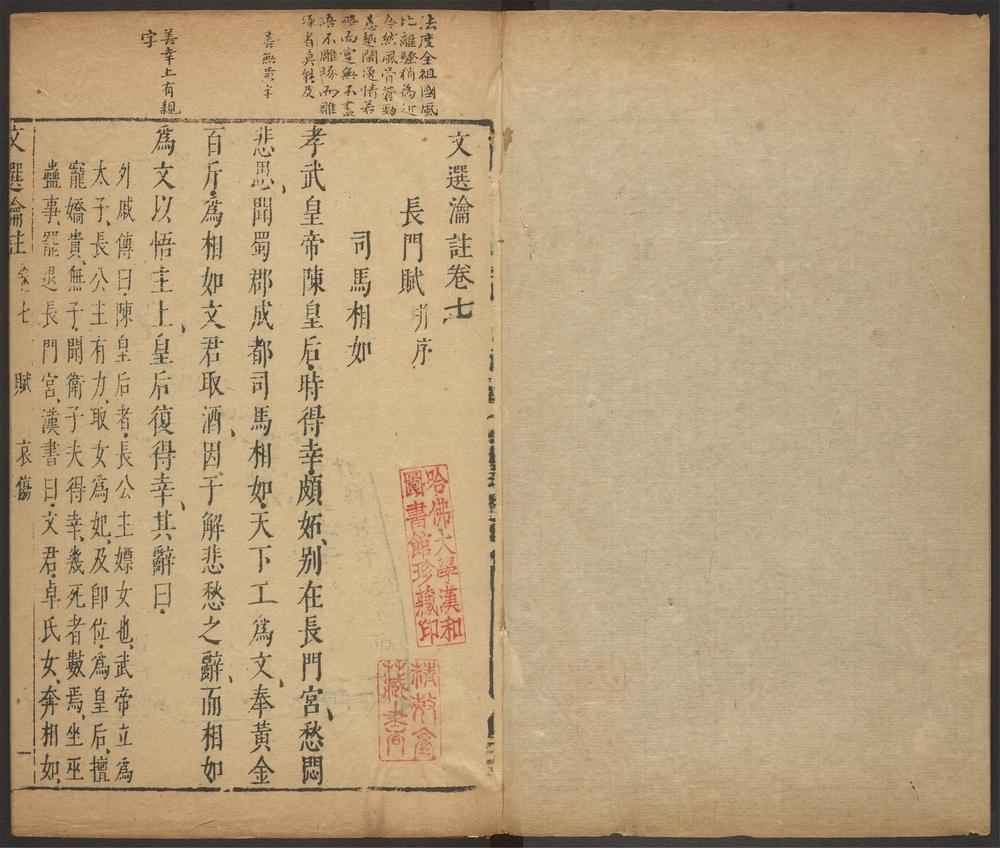 法度全祖國風
比離騷稍為近
今然風骨蒼勁
意趣閑逸情若
略而實無不盡
語不雕琢而雕
琢者莫能及
善無黃字
善幸上有親
字
文選瀹註卷七
長門賦 并序
司馬相如
孝武皇帝陳皇后時得幸頗妬別在長門宮愁悶
悲思聞蜀郡成都司馬相如天下工為文奉黃金
百斤為相如文君取酒因于解悲愁之辭而相如
為文以悟主上皇后復得幸其辭曰
外戚傳曰陳皇后者長公主嫖女也武帝立為
太子長公主有力取女為妃及即位為皇后擅
寵嬌貴無子聞衛子夫得幸幾死者數焉坐巫
蠱事罷退長門宮漢書曰文君卓氏女奔相如
文選瀹註 卷七 賦 哀傷 一
哈佛大學漢和
圖書館珍藏印
藏書